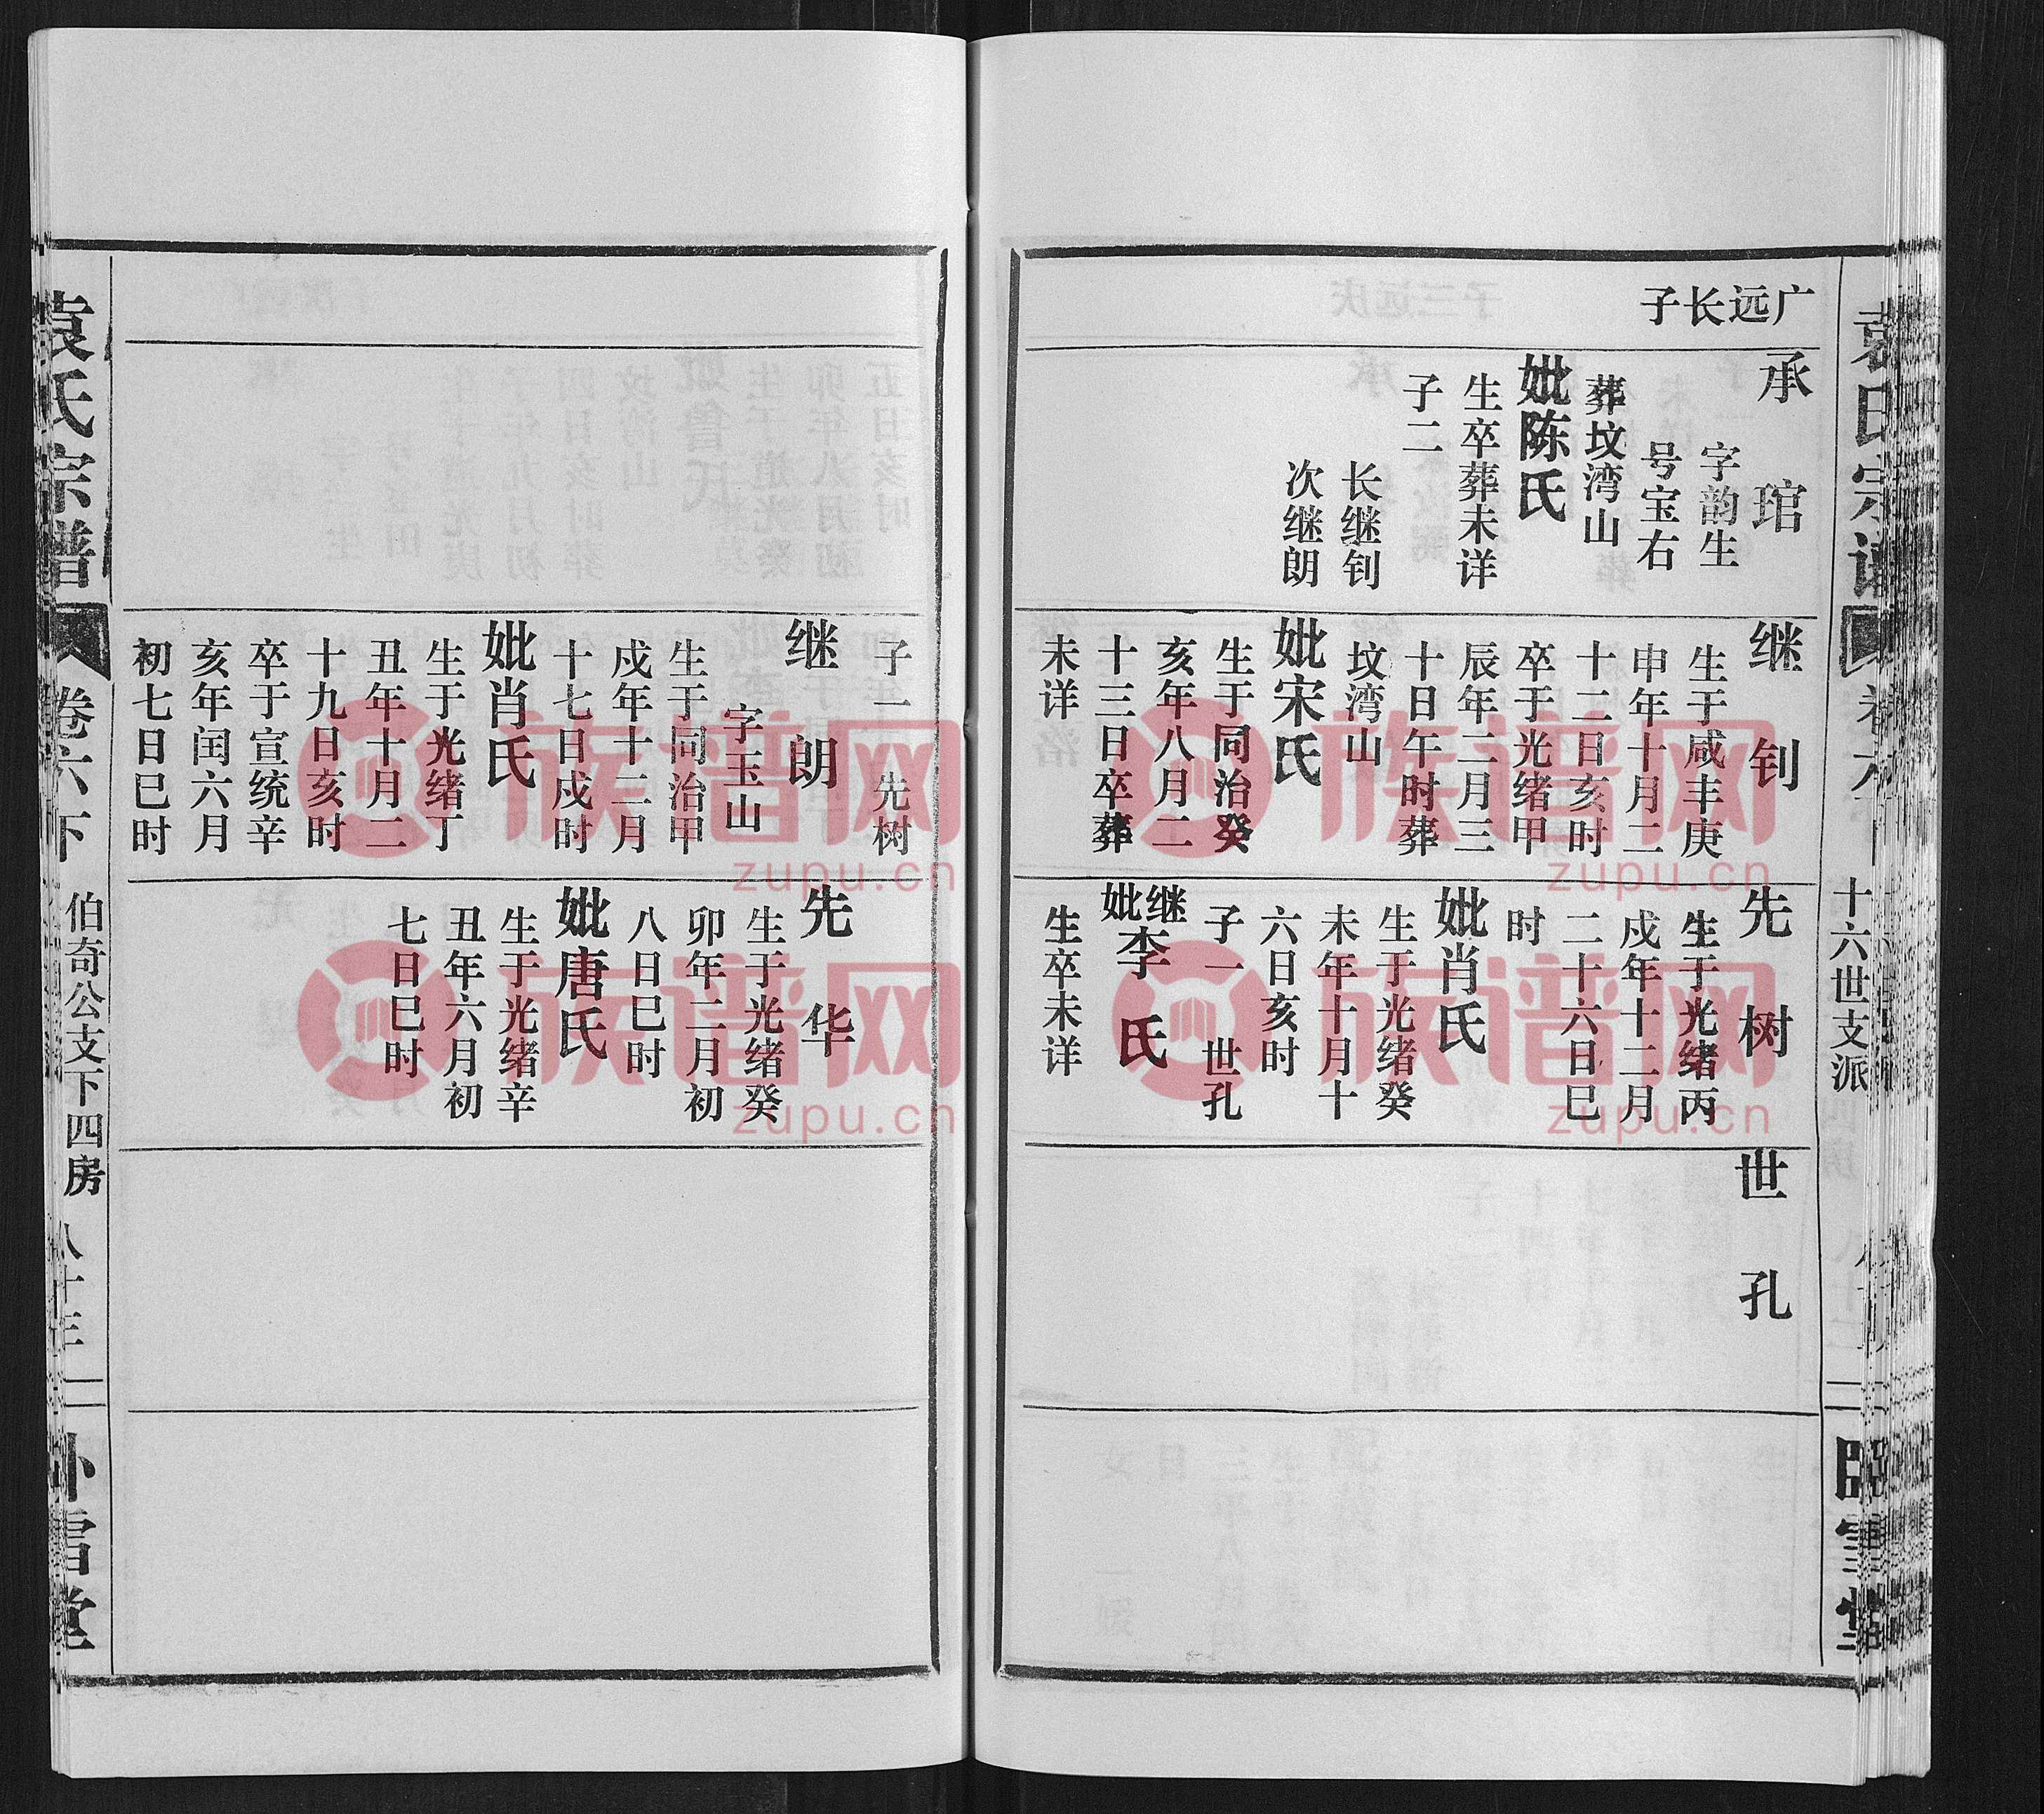 广远长子
承琯
字韵生
号宝右
葬坟湾山
妣陈氏
生卒葬未详
子二
长继钊
次继朗
继钊
生于咸丰庚
申年十月二
十二日亥时
卒于光绪甲
辰年二月三
十日午时葬
坟湾山
妣宋氏
生于同治癸
亥年八月二
十三日卒葬
未详
先树
生于光绪丙
戍年十二月
二十六日巳
时
妣肖氏
生于光绪癸
未年十月十
六日亥时
子一 世孔
继妣李氏
生卒未详
世孔
十六世支派
子一 先树
继朗
字玉山
生于同治甲
戍年十二月
十七日戍时
妣肖氏
生于光绪丁
丑年十月二
十九日亥时
卒于宣统辛
亥年闰六月
初七日巳时
先华
生于光绪癸
卯年二月初
八日巳时
妣唐氏
生于光绪辛
丑年六月初
七日巳时
袁氏宗谱
卷六下
伯奇公支下四房
八十三
族谱网
zupu.cn
族谱网
zupu.cn
族谱网
zupu.cn
族谱网
zupu.cn